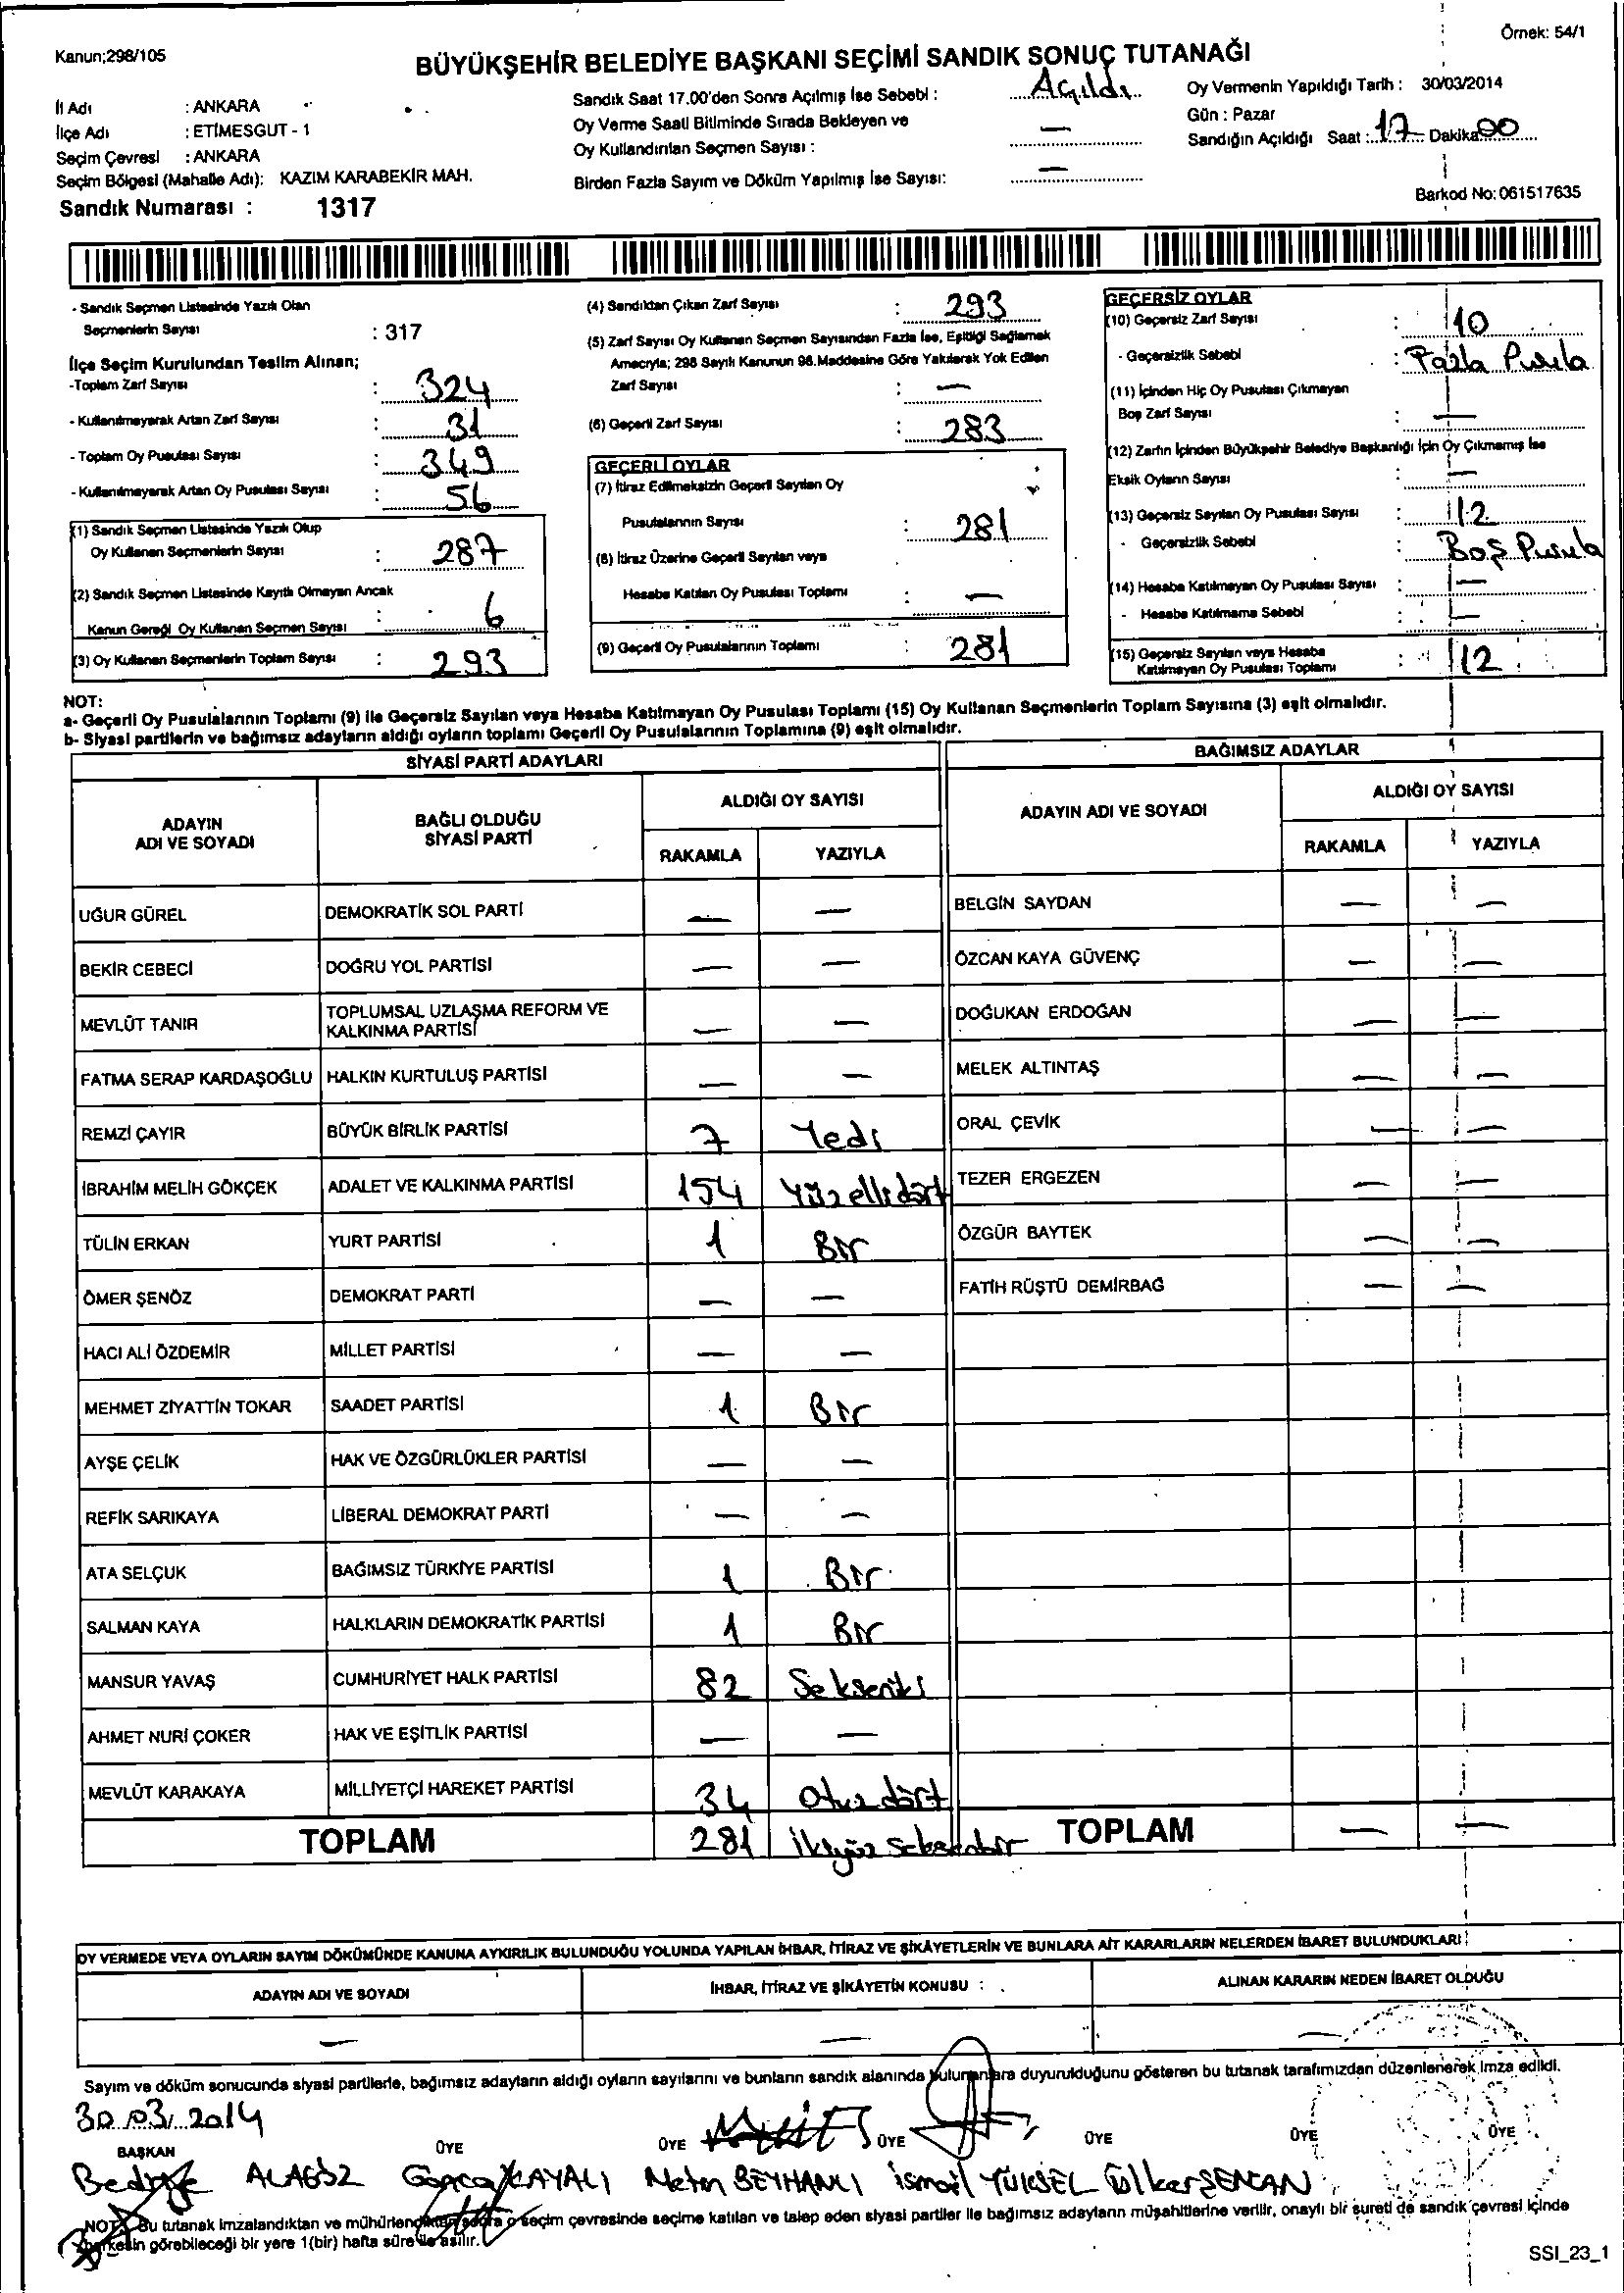 Örnek: 54/1
Kanun;298/105
BÜYÜKŞEHİR BELEDİYE BAŞKANI SEÇİMİ SANDIK SONUÇ TUTANAĞI
İl Adı : ANKARA
İlçe Adı : ETİMESGUT - 1
Seçim Çevresi : ANKARA
Seçim Bölgesi (Mahalle Adı): KAZIM KARABEKİR MAH.
Sandık Numarası : 1317
Sandık Saat 17.00'den Sonra Açılmış İse Sebebi : Açıldı
Oy Verme Saati Bitiminde Sırada Bekleyen ve
Oy Kullandırılan Seçmen Sayısı : —
Birden Fazla Sayım ve Döküm Yapılmış İse Sayısı: —
Oy Vermenin Yapıldığı Tarih : 30/03/2014
Gün : Pazar
Sandığın Açıldığı Saat : 17 Dakika 00
Barkod No: 061517635
- Sandık Seçmen Listesinde Yazılı Olan
Seçmenlerin Sayısı : 317
İlçe Seçim Kurulundan Teslim Alınan;
-Toplam Zarf Sayısı : 324
- Kullanılmayarak Artan Zarf Sayısı : 31
- Toplam Oy Pusulası Sayısı : 349
- Kullanılmayarak Artan Oy Pusulası Sayısı : 56
(1) Sandık Seçmen Listesinde Yazılı Olup
Oy Kullanan Seçmenlerin Sayısı : 287
(2) Sandık Seçmen Listesinde Kayıtlı Olmayan Ancak
Kanun Gereği Oy Kullanan Seçmen Sayısı : 6
(3) Oy Kullanan Seçmenlerin Toplam Sayısı : 293
(4) Sandıktan Çıkan Zarf Sayısı : 293
(5) Zarf Sayısı Oy Kullanan Seçmen Sayısından Fazla İse, Eşitliği Sağlamak
Amacıyla; 298 Sayılı Kanunun 98.Maddesine Göre Yakılarak Yok Edilen
Zarf Sayısı : —
(6) Geçerli Zarf Sayısı : 283
GEÇERLİ OYLAR
(7) İtiraz Edilmeksizin Geçerli Sayılan Oy
Pusulalarının Sayısı : 281
(8) İtiraz Üzerine Geçerli Sayılan veya
Hesaba Katılan Oy Pusulası Toplamı : —
(9) Geçerli Oy Pusulalarının Toplamı : 281
GEÇERSİZ OYLAR
(10) Geçersiz Zarf Sayısı : 10
- Geçersizlik Sebebi : Fazla Pusula
(11) İçinden Hiç Oy Pusulası Çıkmayan
Boş Zarf Sayısı : —
(12) Zarfın İçinden Büyükşehir Belediye Başkanlığı İçin Oy Çıkmamış İse
Eksik Oyların Sayısı : —
(13) Geçersiz Sayılan Oy Pusulası Sayısı : 12
- Geçersizlik Sebebi : Boş Pusula
(14) Hesaba Katılmayan Oy Pusulası Sayısı : —
- Hesaba Katılmama Sebebi : —
(15) Geçersiz Sayılan veya Hesaba
Katılmayan Oy Pusulası Toplamı : 12
NOT:
a- Geçerli Oy Pusulalarının Toplamı (9) ile Geçersiz Sayılan veya Hesaba Katılmayan Oy Pusulası Toplamı (15) Oy Kullanan Seçmenlerin Toplam Sayısına (3) eşit olmalıdır.
b- Siyasi partilerin ve bağımsız adayların aldığı oyların toplamı Geçerli Oy Pusulalarının Toplamına (9) eşit olmalıdır.
SİYASİ PARTİ ADAYLARI
ADAYIN ADI VE SOYADI | BAĞLI OLDUĞU SİYASİ PARTİ | ALDIĞI OY SAYISI RAKAMLA YAZIYLA
UĞUR GÜREL DEMOKRATİK SOL PARTİ — —
BEKİR CEBECİ DOĞRU YOL PARTİSİ — —
MEVLÜT TANIR TOPLUMSAL UZLAŞMA REFORM VE KALKINMA PARTİSİ — —
FATMA SERAP KARDAŞOĞLU HALKIN KURTULUŞ PARTİSİ — —
REMZİ ÇAYIR BÜYÜK BİRLİK PARTİSİ 7 Yedi
İBRAHİM MELİH GÖKÇEK ADALET VE KALKINMA PARTİSİ 154 Yüzellidört
TÜLİN ERKAN YURT PARTİSİ 1 Bir
ÖMER ŞENÖZ DEMOKRAT PARTİ — —
HACI ALİ ÖZDEMİR MİLLET PARTİSİ — —
MEHMET ZİYATTİN TOKAR SAADET PARTİSİ 1 Bir
AYŞE ÇELİK HAK VE ÖZGÜRLÜKLER PARTİSİ — —
REFİK SARIKAYA LİBERAL DEMOKRAT PARTİ — —
ATA SELÇUK BAĞIMSIZ TÜRKİYE PARTİSİ 1 Bir
SALMAN KAYA HALKLARIN DEMOKRATİK PARTİSİ 1 Bir
MANSUR YAVAŞ CUMHURİYET HALK PARTİSİ 82 Sekseniki
AHMET NURİ ÇOKER HAK VE EŞİTLİK PARTİSİ — —
MEVLÜT KARAKAYA MİLLİYETÇİ HAREKET PARTİSİ 34 Otuzdört
TOPLAM 281 İkiyüz seksenbir
BAĞIMSIZ ADAYLAR
ADAYIN ADI VE SOYADI | ALDIĞI OY SAYISI RAKAMLA YAZIYLA
BELGİN SAYDAN — —
ÖZCAN KAYA GÜVENÇ — —
DOĞUKAN ERDOĞAN — —
MELEK ALTINTAŞ — —
ORAL ÇEVİK — —
TEZER ERGEZEN — —
ÖZGÜR BAYTEK — —
FATİH RÜŞTÜ DEMİRBAĞ — —
TOPLAM — —
OY VERMEDE VEYA OYLARIN SAYIM DÖKÜMÜNDE KANUNA AYKIRILIK BULUNDUĞU YOLUNDA YAPILAN İHBAR, İTİRAZ VE ŞİKÂYETLERİN VE BUNLARA AİT KARARLARIN NELERDEN İBARET BULUNDUKLARI
ADAYIN ADI VE SOYADI İHBAR, İTİRAZ VE ŞİKÂYETİN KONUSU : ALINAN KARARIN NEDEN İBARET OLDUĞU
— — —
Sayım ve döküm sonucunda siyasi partilerle, bağımsız adayların aldığı oyların sayılarını ve bunların sandık alanında bulunanlara duyurulduğunu gösteren bu tutanak tarafımızdan düzenlenerek imza edildi.
30.03.2014
BAŞKAN ÜYE ÜYE ÜYE ÜYE ÜYE ÜYE
Bedriye ALAGÖZ Gonca KAYALI Metin BEYHANLI İsmail YÜKSEL Ülker ŞENCAN
NOT: Bu tutanak imzalandıktan ve mühürlendikten sonra o seçim çevresinde seçime katılan ve talep eden siyasi partiler ile bağımsız adayların müşahitlerine verilir, onaylı bir sureti de sandık çevresi içinde
herkesin görebileceği bir yere 1(bir) hafta süre ile asılır.
SSI_23_1